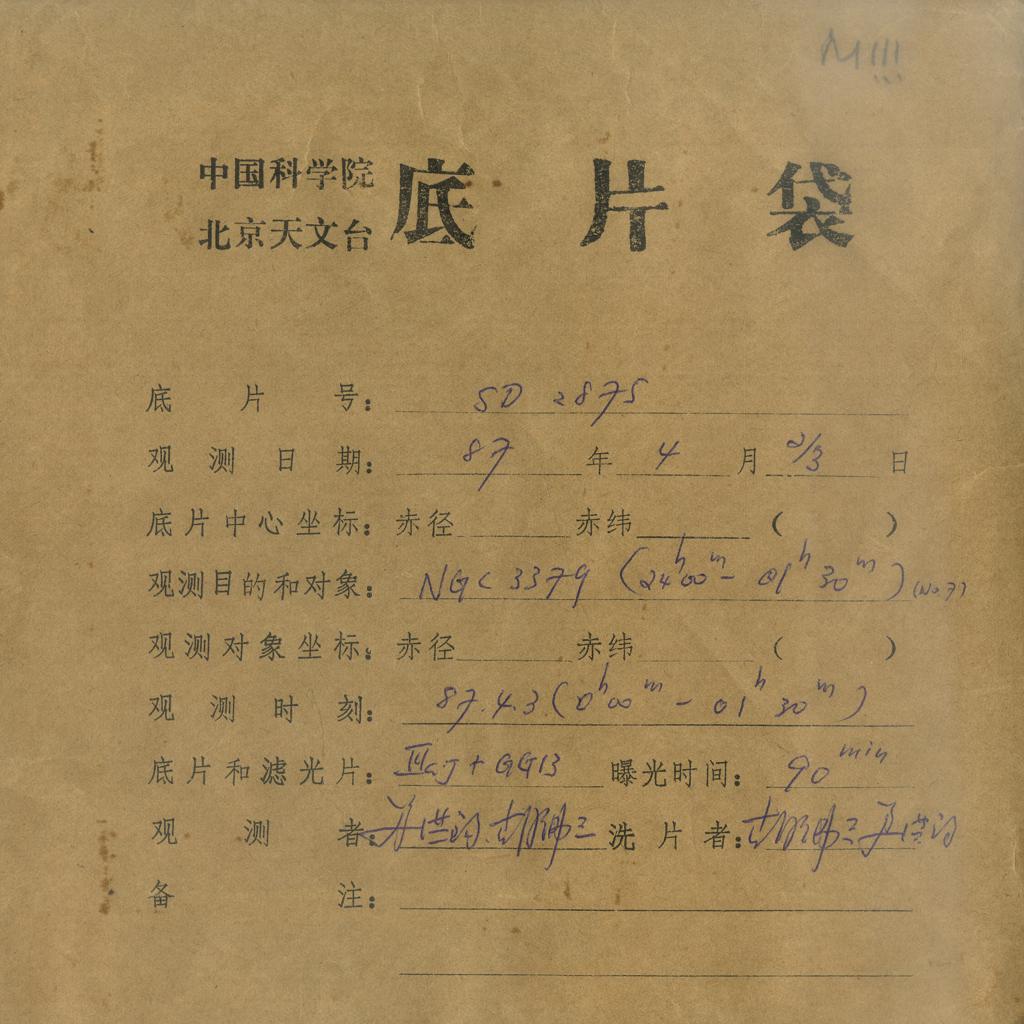 M111
中国科学院
北京天文台
底片袋
底片号: SD 2875
观测日期: 87年4月2/3日
底片中心坐标: 赤径 赤纬 ( )
观测目的和对象: NGC 3379 (24h00m - 01h30m) (No 7)
观测对象坐标: 赤径 赤纬 ( )
观测时刻: 87.4.3 (0h00m - 01h30m)
底片和滤光片: IIaJ + GG13 曝光时间: 90min
观测者: 洗片者:
备注: